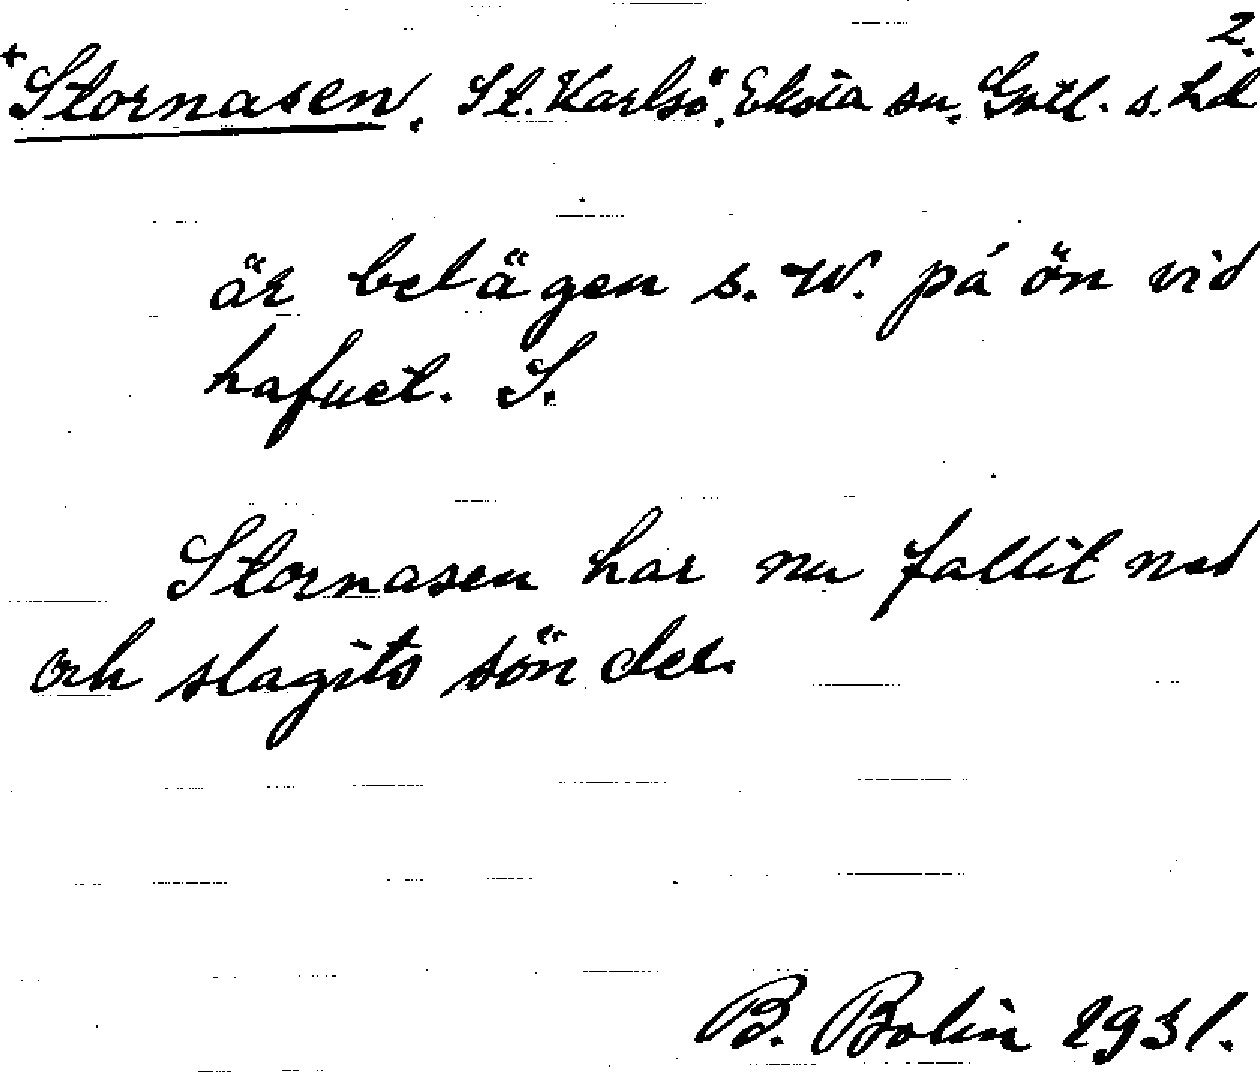 2.
+Stornasen. St. Karlsö. Eksta sn. Gotl. s. hd
är belägen s. W. på ön vid
hafvet. S.
Stornasen har nu fallit ned
och slagits sönder.
B. Bolin 1931.